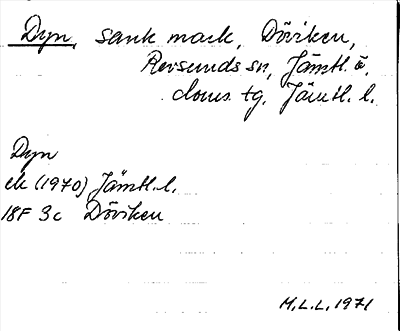 Dyn, sank mark, Döviken,
Revsunds sn, Jämtl. ö.
doms. tg, Jämtl. l.
Dyn
ek (1970) Jämtl. l.
18F 3c Döviken
M.L.L. 1971